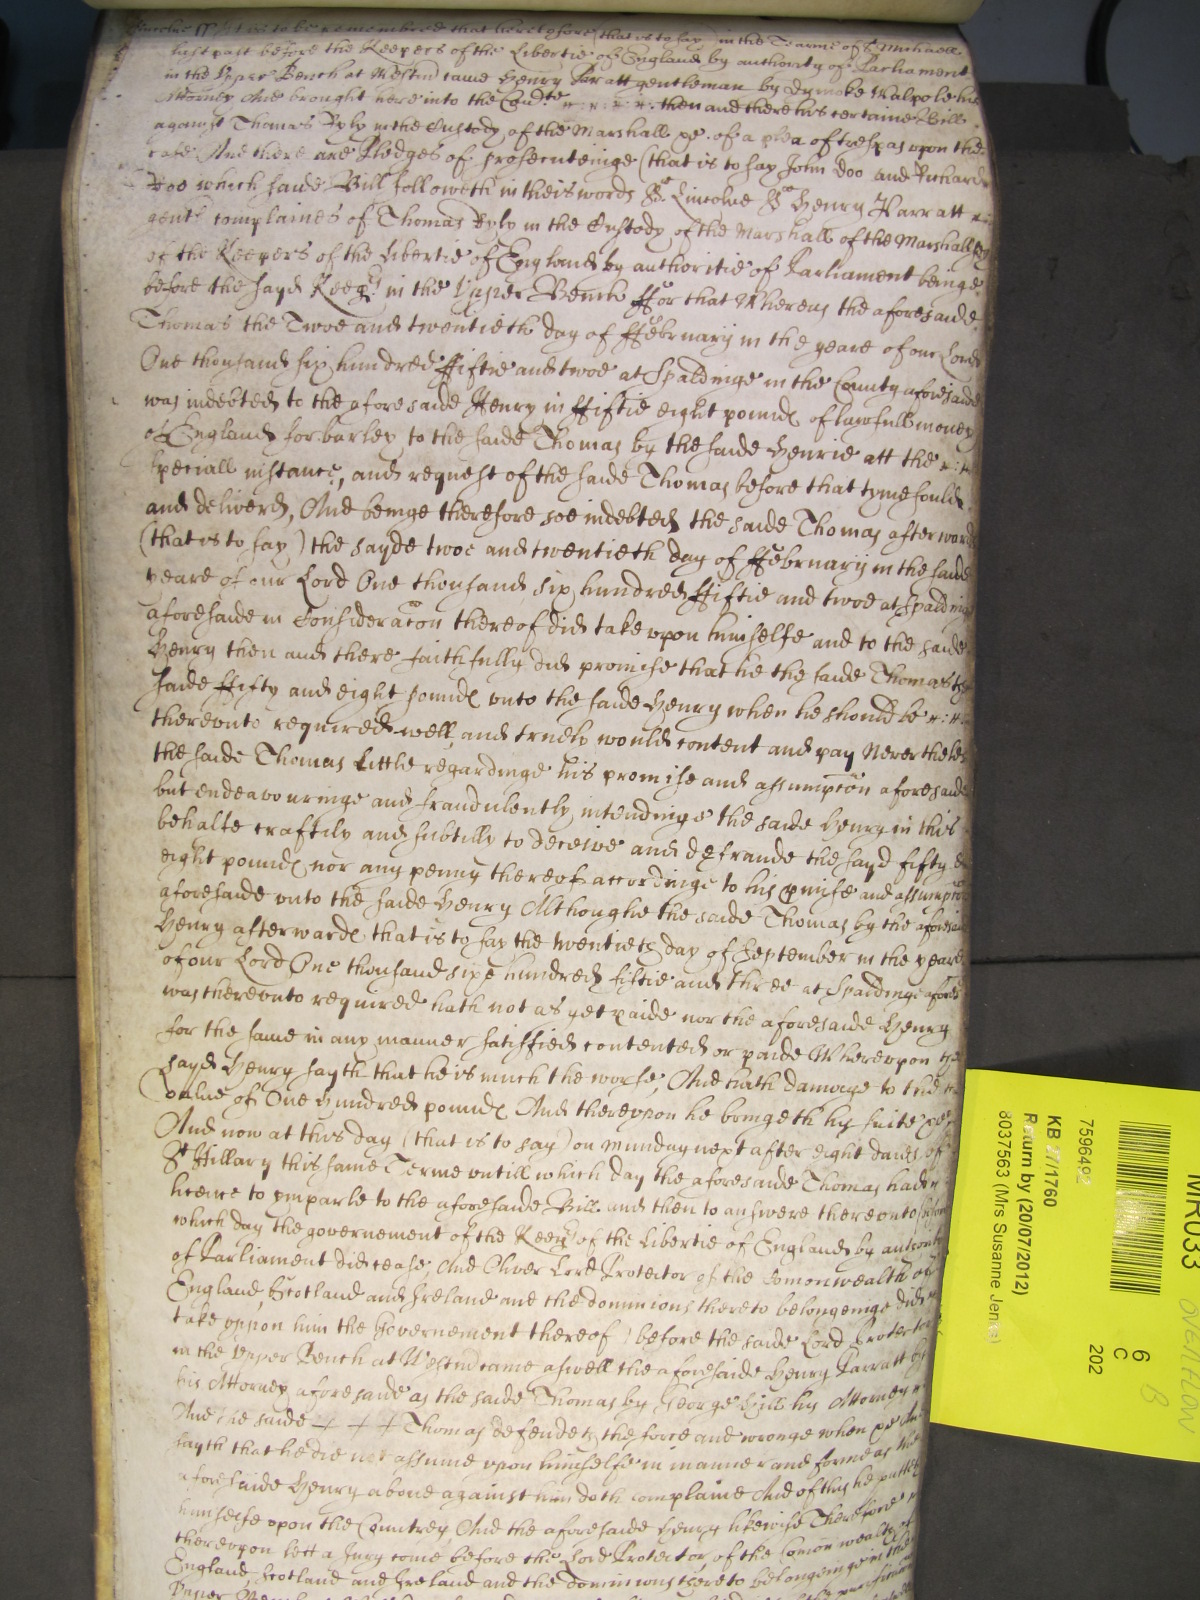 Lincolne ss It is to be remembred that heretofore (that is to say) in the Tearme of St Michaell
last past before the Keepers of the Libertie of England by authority of Parliament
in the Upper Bench at Westmr came Henry Parratt gentleman by Dymoke Walpole his
Attorney And brought here into the Court then and there his certaine Bill
against Thomas Pyly in the Custody of the Marshall &c. of a plea of trespas upon the
case And there are Pledges of prosecuteinge (that is to say John Doo and Richard
Roo which saide Bill followeth in theis words ss. Lincolne ss Henry Parratt
gent complaines of Thomas Pyly in the Custody of the Marshall of the Marshallsey
of the Keepers of the Libertie of England by authoritie of Parliament beinge
before the sayd Keeps in the Upper Bench ffor that Whereas the aforesaide
Thomas the Twoe and twentieth day of ffebruary in the yeare of our Lord
One thousand six hundred ffiftie and twoe at Spaldinge in the County aforesaide
was indebted to the aforesaide Henry in ffiftie eight pounds of lawfull money
of England for barley to the saide Thomas by the saide Henrie att the
speciall instance, and request of the saide Thomas before that tyme sould
and deliverd, And beinge therefore soe indebted the saide Thomas afterwards
(that is to say) the sayde twoe and twentieth day of ffebruary in the saide
yeare of our Lord One thousand six hundred ffiftie and twoe at Spaldinge
aforesaide in Consideracon thereof did take upon himselfe and to the saide
Henry then and there faithfully did promise that he the saide Thomas the
saide ffifty and eight pounds unto the saide Henry when he should be
thereunto required well and truely would content and pay Neverthelesse
the saide Thomas Little regardinge his promise and assumpcon aforesaide
but endeavouringe and fraudulently intendinge the saide Henry in this
behalfe craftily and subtilly to deceive and defraude the sayd fifty
eight pounds nor any penny thereof accordinge to his pmise and assumpcon
aforesaide unto the saide Henry Althoughe the saide Thomas by the aforesaid
Henry afterwards that is to say the twentieth day of September in the yeare
of our Lord One thousand sixe hundred fiftie and three at Spaldinge aforesd
was thereunto required hath not as yet paide nor the aforesaide Henry
for the same in any manner satisfied contented or paide Whereupon the
sayd Henry sayth that he is much the worse, And hath damage to the
value of One Hundred pounds And thereupon he bringeth his suite &c
And now at this day (that is to say) on Munday next after eight daies of
St Hillary this same Terme untill which day the aforesaide Thomas had
licence to ymparle to the aforesaide Bill and then to answere thereunto
which day the governement of the Keeps of the Libertie of England by authority
of Parliament did cease, And Oliver Lord Protector of the Comonwealth of
England, Scotland and Ireland and the dominions thereto belongeinge did
take uppon him the Governement thereof) before the saide Lord Protector
in the Upper Bench at Westmr came aswell the aforesaide Henry Parratt by
his Attorney aforesaide as the saide Thomas by George Hill his Attorney
And the saide Thomas defendeth the force and wronge when &c And
sayth that he did not assume upon himselfe in manner and forme as the
aforesaide Henry above against him doth complaine And of this he putteth
himselfe upon the Countrey And the aforesaide Henry likewise Therefore
thereupon lett a Jury come before the Lord Protector of the Comon wealth of
England, Scotland and Ireland and the dominions thereto belongeinge in the
Upper
MR033
OVERFLOW
B
6
C
202
759649
KB 27/1760
Return by (20/07/2012)
8037563 (Mrs Susanne Jen